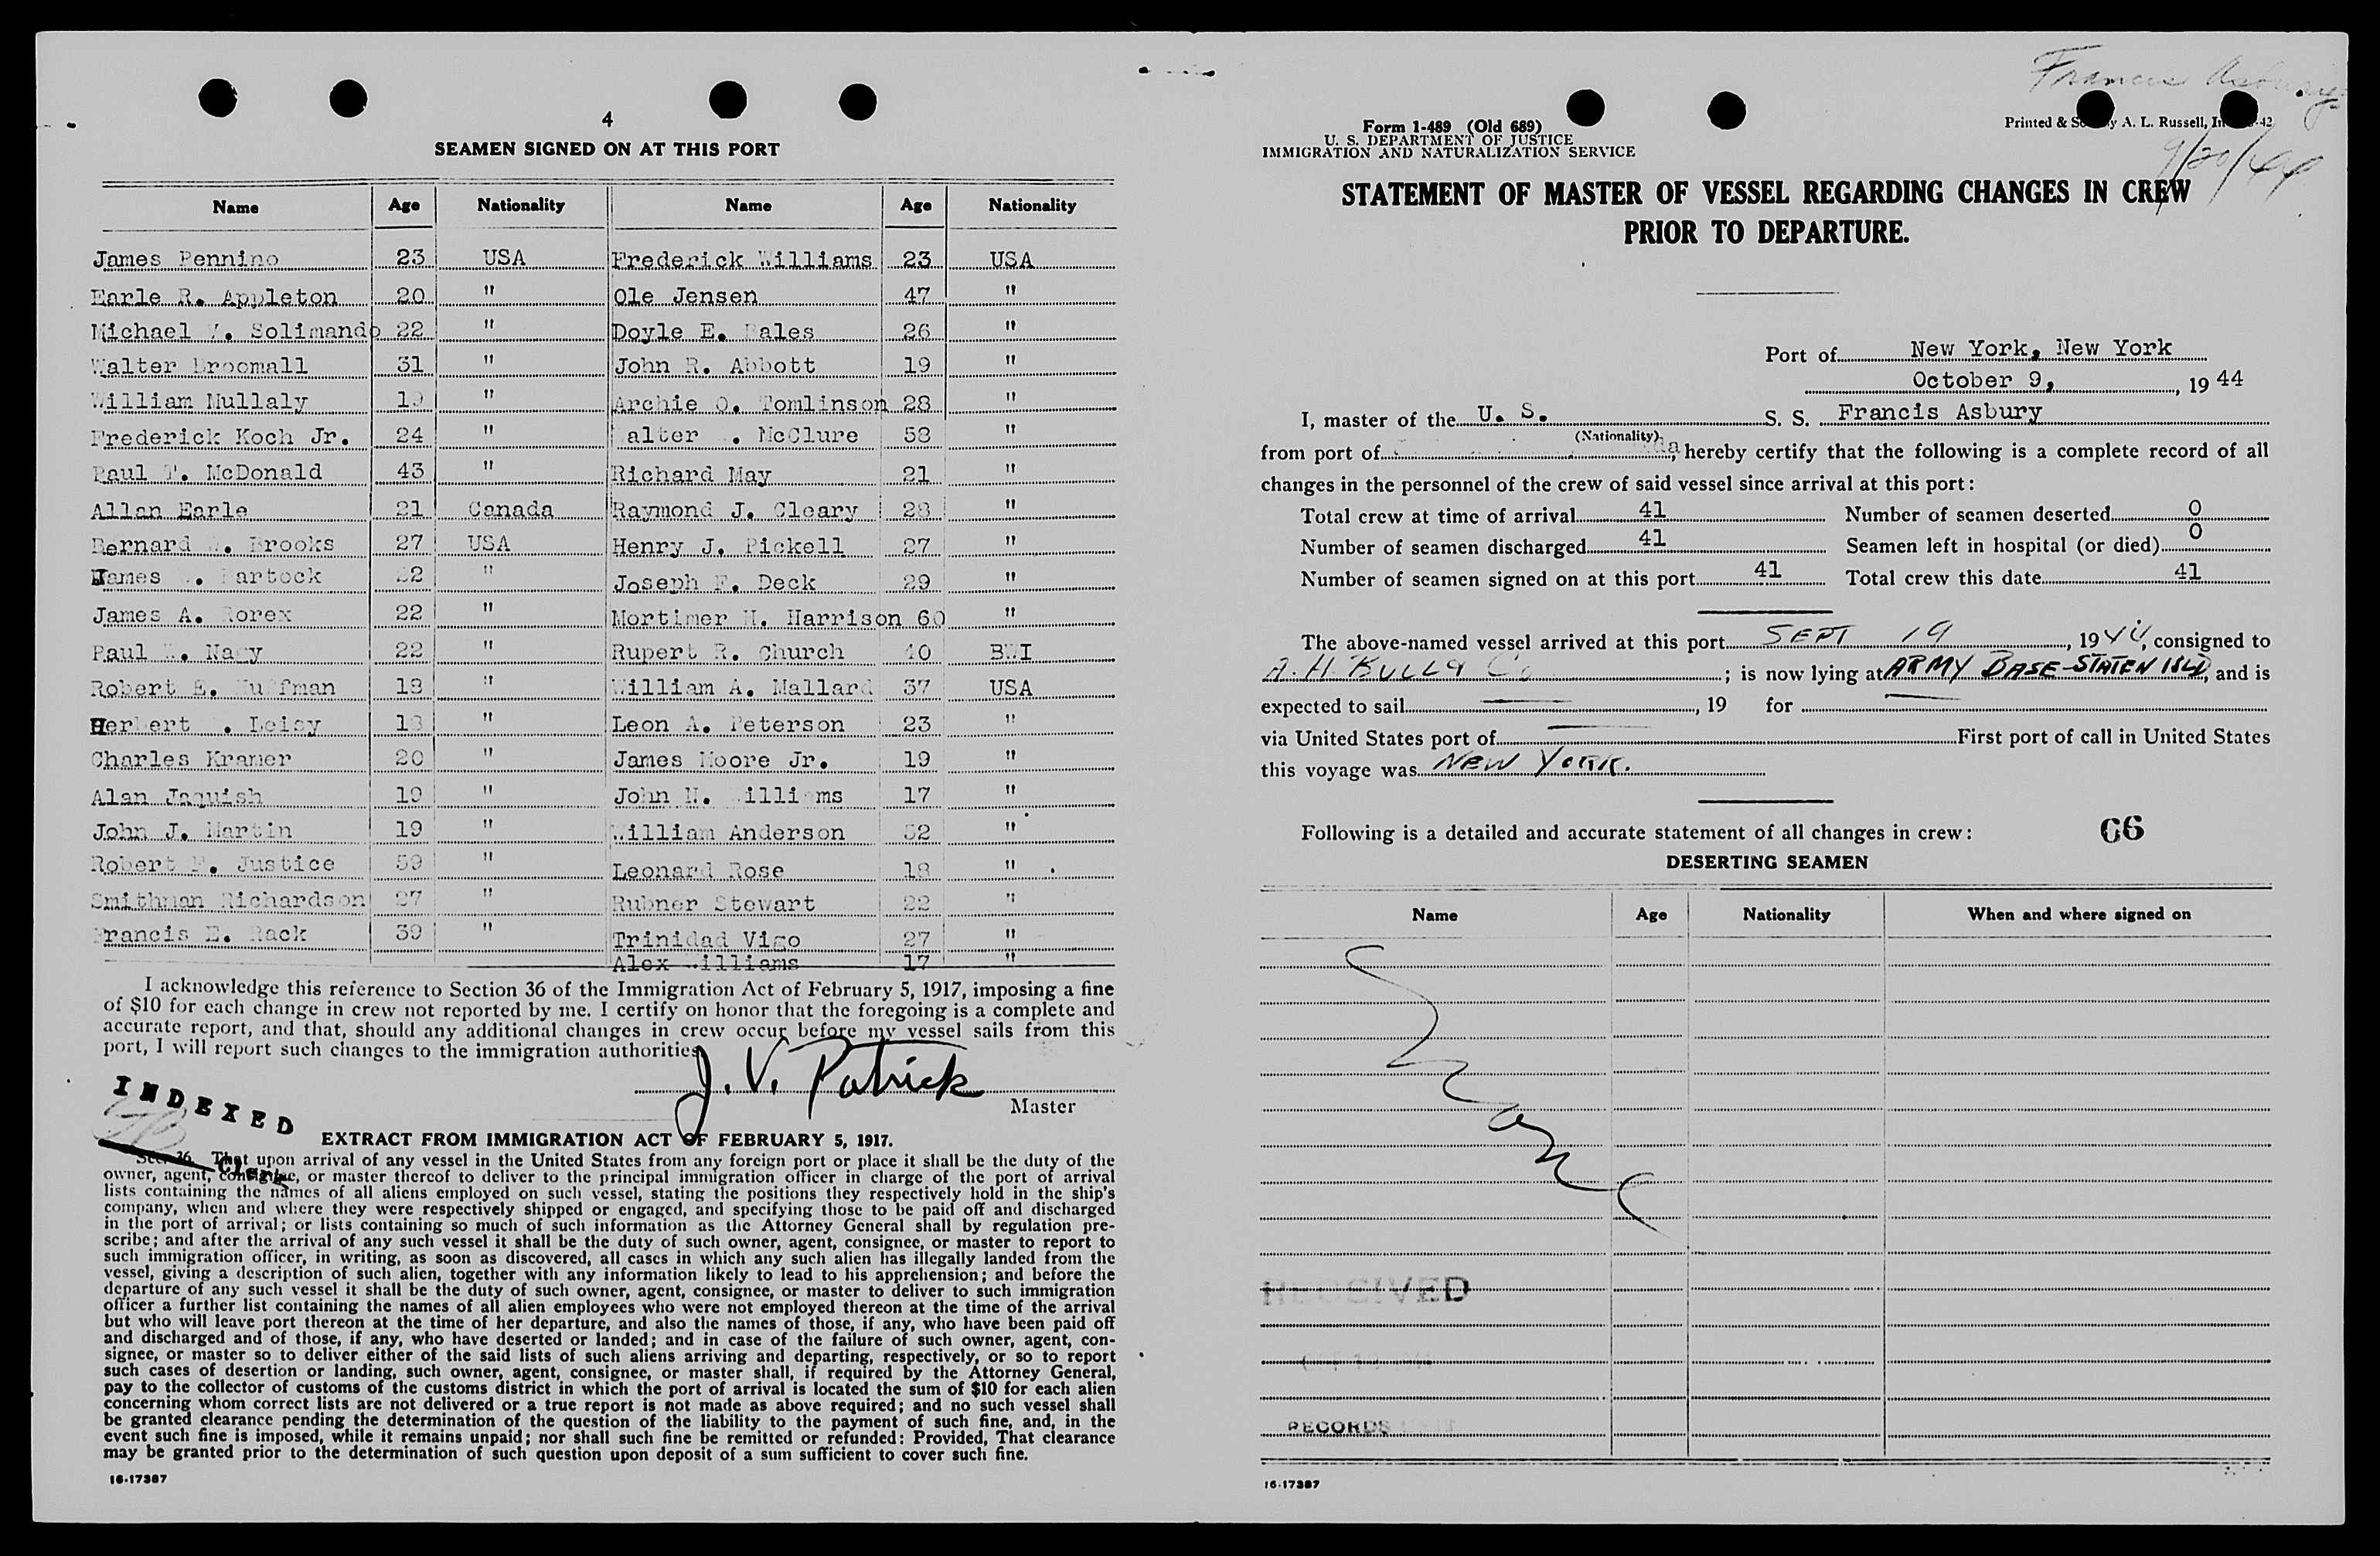 4
SEAMEN SIGNED ON AT THIS PORT
Name Age Nationality Name Age Nationality
James Pennino 23 USA Frederick Williams 23 USA
Earle R. Appleton 20 " Ole Jensen 47 "
Michael V. Solimando 22 " Doyle E. ales 26 "
Walter Broomall 31 " John R. Abbott 19 "
William Mullaly 19 " Archie O. Tomlinson 28 "
Frederick Koch Jr. 24 " alter . McClure 58 "
Paul T. McDonald 43 " Richard May 21 "
Allan Earle 21 Canada Raymond J. Cleary 28 "
Bernard . Brooks 27 USA Henry J. Pickell 27 "
James . artock 22 " Joseph F. Deck 29 "
James A. orex 22 " Mortimer H. Harrison 60 "
Paul . Nagy 22 " Rupert R. Church 40 BWI
Robert E. Huffman 18 " William A. Mallard 37 USA
Herbert . Leisy 18 " Leon A. Peterson 23 "
Charles Kramer 20 " James Moore Jr. 19 "
Alan Jaquish 19 " John N. Williams 17 "
John J. Martin 19 " William Anderson 32 "
Robert F. Justice 59 " Leonard Rose 18 "
Smithman Richardson 27 " Rubner Stewart 22 "
Francis E. Rack 39 " Trinidad Vigo 27 "
Alex Williams 17 "
I acknowledge this reference to Section 36 of the Immigration Act of February 5, 1917, imposing a fine
of $10 for each change in crew not reported by me. I certify on honor that the foregoing is a complete and
accurate report, and that, should any additional changes in crew occur before my vessel sails from this
port, I will report such changes to the immigration authorities.
J. V. Patrick
Master
INDEXED
Clerk
EXTRACT FROM IMMIGRATION ACT OF FEBRUARY 5, 1917.
Sec. 36. That upon arrival of any vessel in the United States from any foreign port or place it shall be the duty of the
owner, agent, consignee, or master thereof to deliver to the principal immigration officer in charge of the port of arrival
lists containing the names of all aliens employed on such vessel, stating the positions they respectively hold in the ship's
company, when and where they were respectively shipped or engaged, and specifying those to be paid off and discharged
in the port of arrival; or lists containing so much of such information as the Attorney General shall by regulation pre-
scribe; and after the arrival of any such vessel it shall be the duty of such owner, agent, consignee, or master to report to
such immigration officer, in writing, as soon as discovered, all cases in which any such alien has illegally landed from the
vessel, giving a description of such alien, together with any information likely to lead to his apprehension; and before the
departure of any such vessel it shall be the duty of such owner, agent, consignee, or master to deliver to such immigration
officer a further list containing the names of all alien employees who were not employed thereon at the time of the arrival
but who will leave port thereon at the time of her departure, and also the names of those, if any, who have been paid off
and discharged and of those, if any, who have deserted or landed; and in case of the failure of such owner, agent, con-
signee, or master so to deliver either of the said lists of such aliens arriving and departing, respectively, or so to report
such cases of desertion or landing, such owner, agent, consignee, or master shall, if required by the Attorney General,
pay to the collector of customs of the customs district in which the port of arrival is located the sum of $10 for each alien
concerning whom correct lists are not delivered or a true report is not made as above required; and no such vessel shall
be granted clearance pending the determination of the question of the liability to the payment of such fine, and, in the
event such fine is imposed, while it remains unpaid; nor shall such fine be remitted or refunded: Provided, That clearance
may be granted prior to the determination of such question upon deposit of a sum sufficient to cover such fine.
16-17387
Francis Asbury
9/20/44
Form 1-489 (Old 689)
U. S. DEPARTMENT OF JUSTICE
IMMIGRATION AND NATURALIZATION SERVICE
Printed & Sold by A. L. Russell, In -42
STATEMENT OF MASTER OF VESSEL REGARDING CHANGES IN CREW
PRIOR TO DEPARTURE.
Port of New York, New York
October 9, 19 44
I, master of the U. S. S. S. Francis Asbury
(Nationality)
from port of , hereby certify that the following is a complete record of all
changes in the personnel of the crew of said vessel since arrival at this port:
Total crew at time of arrival 41 Number of seamen deserted 0
Number of seamen discharged 41 Seamen left in hospital (or died) 0
Number of seamen signed on at this port 41 Total crew this date 41
The above-named vessel arrived at this port SEPT 19, 1944, consigned to
A. H. BULL & Co ; is now lying at ARMY BASE-STATEN ISLD, and is
expected to sail — , 19 for —
via United States port of — First port of call in United States
this voyage was NEW YORK.
Following is a detailed and accurate statement of all changes in crew: 66
DESERTING SEAMEN
Name Age Nationality When and where signed on
RECEIVED
RECORDS
16-17387